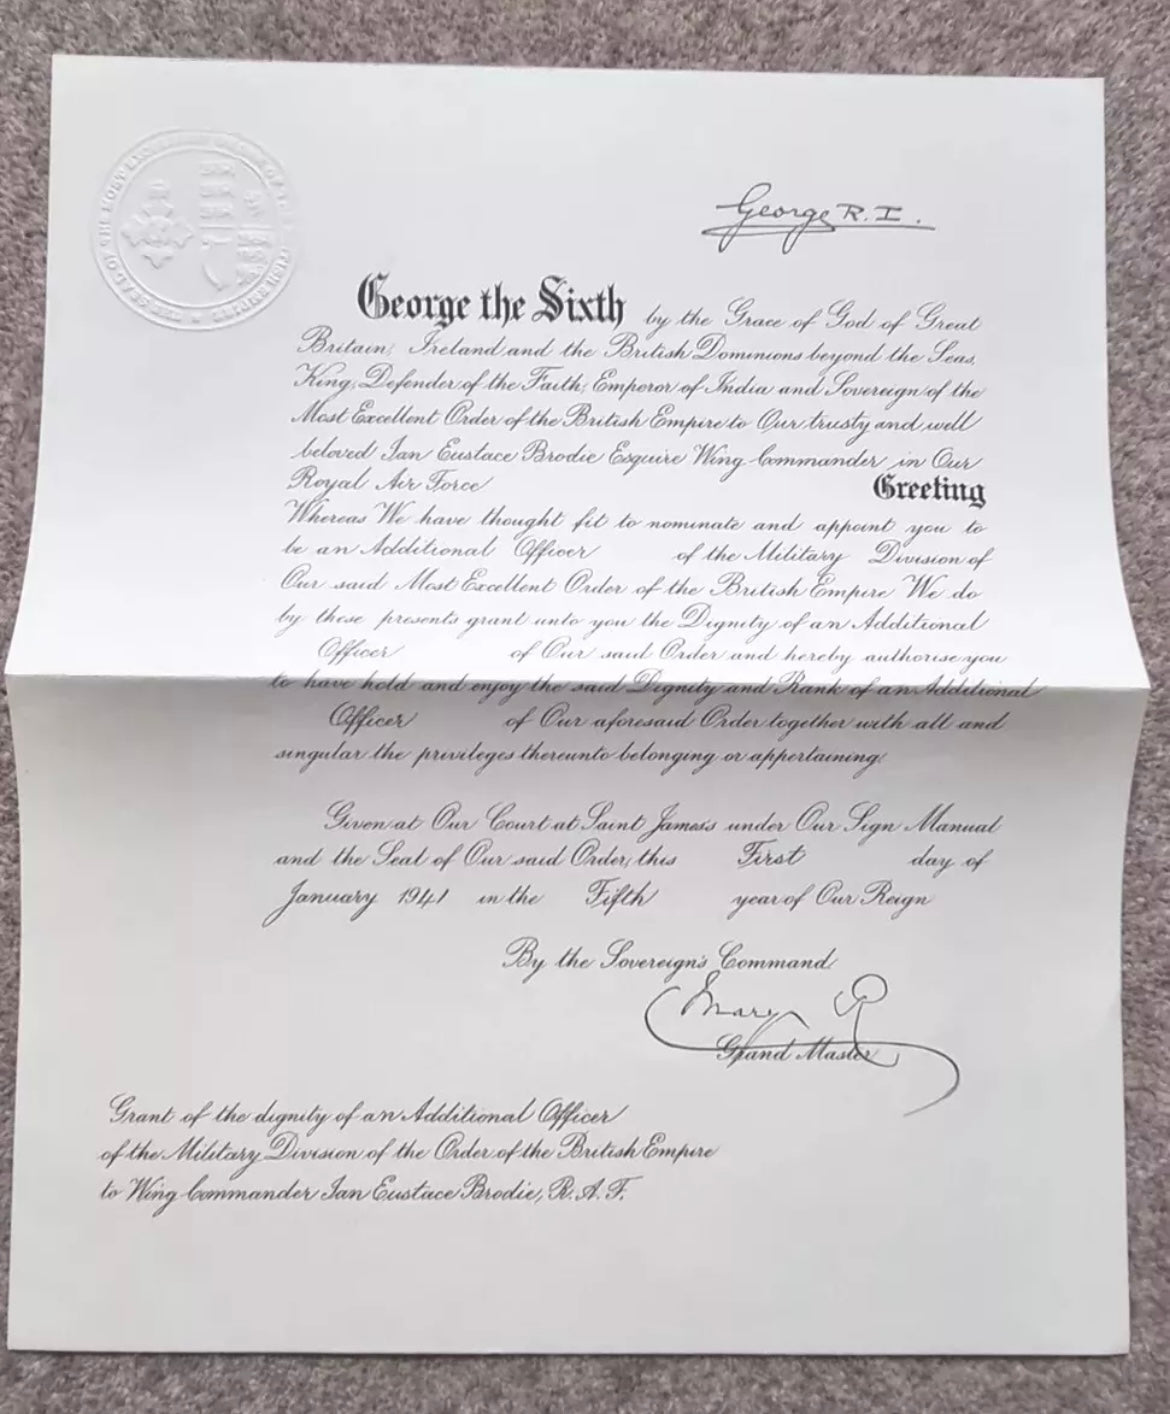 George R.I.
George the Sixth by the Grace of God of Great
Britain, Ireland and the British Dominions beyond the Seas,
King, Defender of the Faith, Emperor of India and Sovereign of the
Most Excellent Order of the British Empire to Our trusty and well
beloved Ian Eustace Brodie Esquire Wing Commander in Our
Royal Air Force Greeting
Whereas We have thought fit to nominate and appoint you to
be an Additional Officer of the Military Division of
Our said Most Excellent Order of the British Empire We do
by these presents grant unto you the Dignity of an Additional
Officer of Our said Order and hereby authorise you
to have hold and enjoy the said Dignity and Rank of an Additional
Officer of Our aforesaid Order together with all and
singular the privileges thereunto belonging or appertaining.
Given at Our Court at Saint James's under Our Sign Manual
and the Seal of Our said Order, this First day of
January 1941 in the Fifth year of Our Reign
By the Sovereign's Command.
Mary R
Grand Master
Grant of the dignity of an Additional Officer
of the Military Division of the Order of the British Empire
to Wing Commander Ian Eustace Brodie, R.A.F.